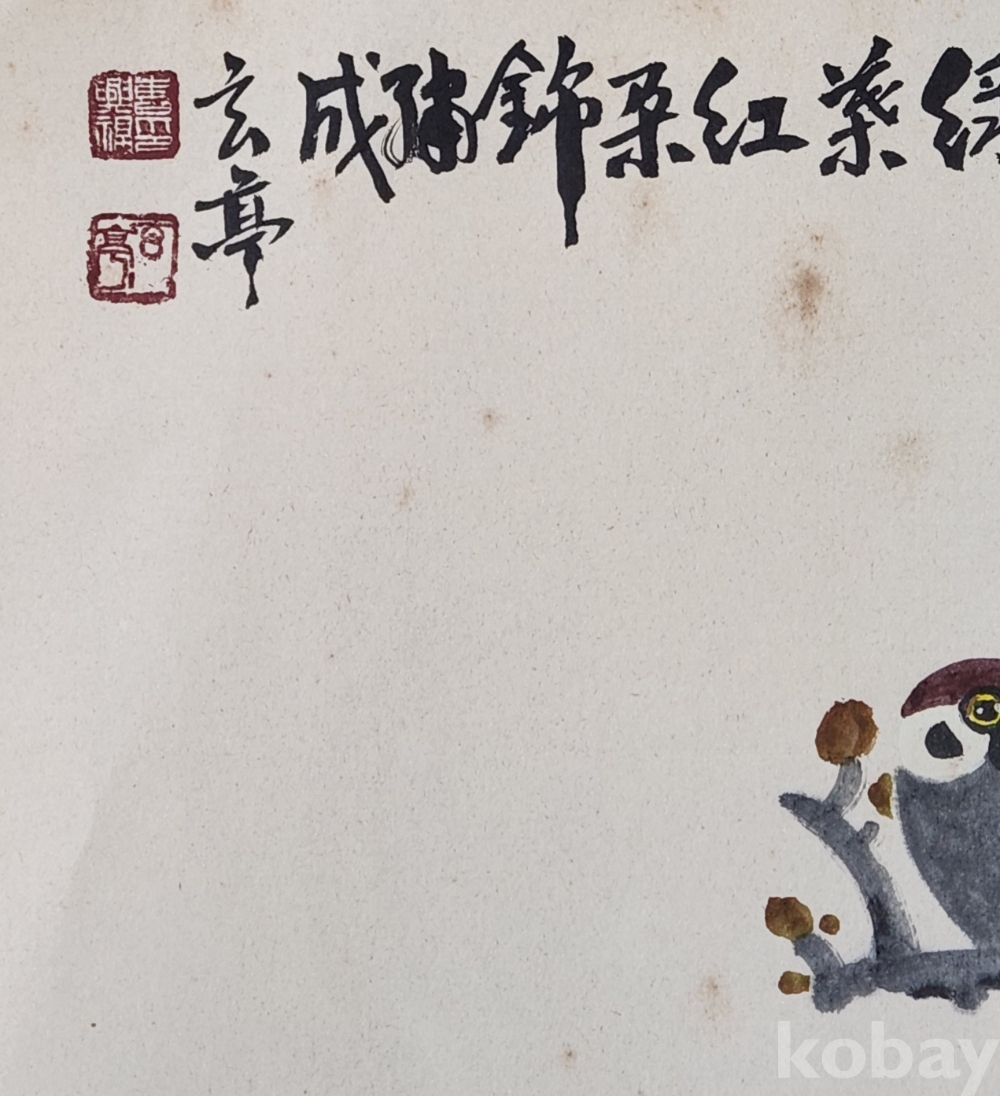 綠葉紅朶錦繡成
玄亭
kobay